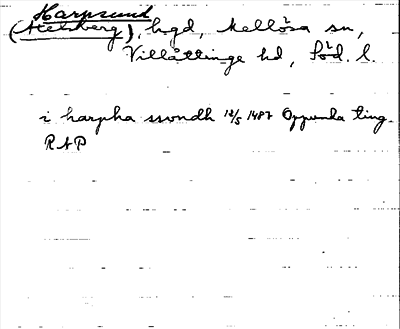 Harpsund
(Helsberg), hgd, Mellösa sn,
Villåttinge hd, Söd. l.
i harpha ssvondh 12/5 1487 Oppunda ting.
RAP